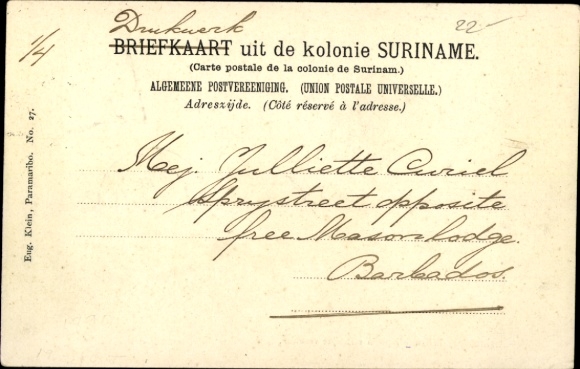 Drukwerk
22-
1/4
BRIEFKAART uit de kolonie SURINAME.
(Carte postale de la colonie de Surinam.)
ALGEMEENE POSTVEREENIGING. (UNION POSTALE UNIVERSELLE.)
Adreszijde. (Côté réservé à l'adresse.)
Mej. Julliette Curiel
Sprystreet opposite
free Masonlodge.
Barbados.
Eug. Klein, Paramaribo. No. 27.